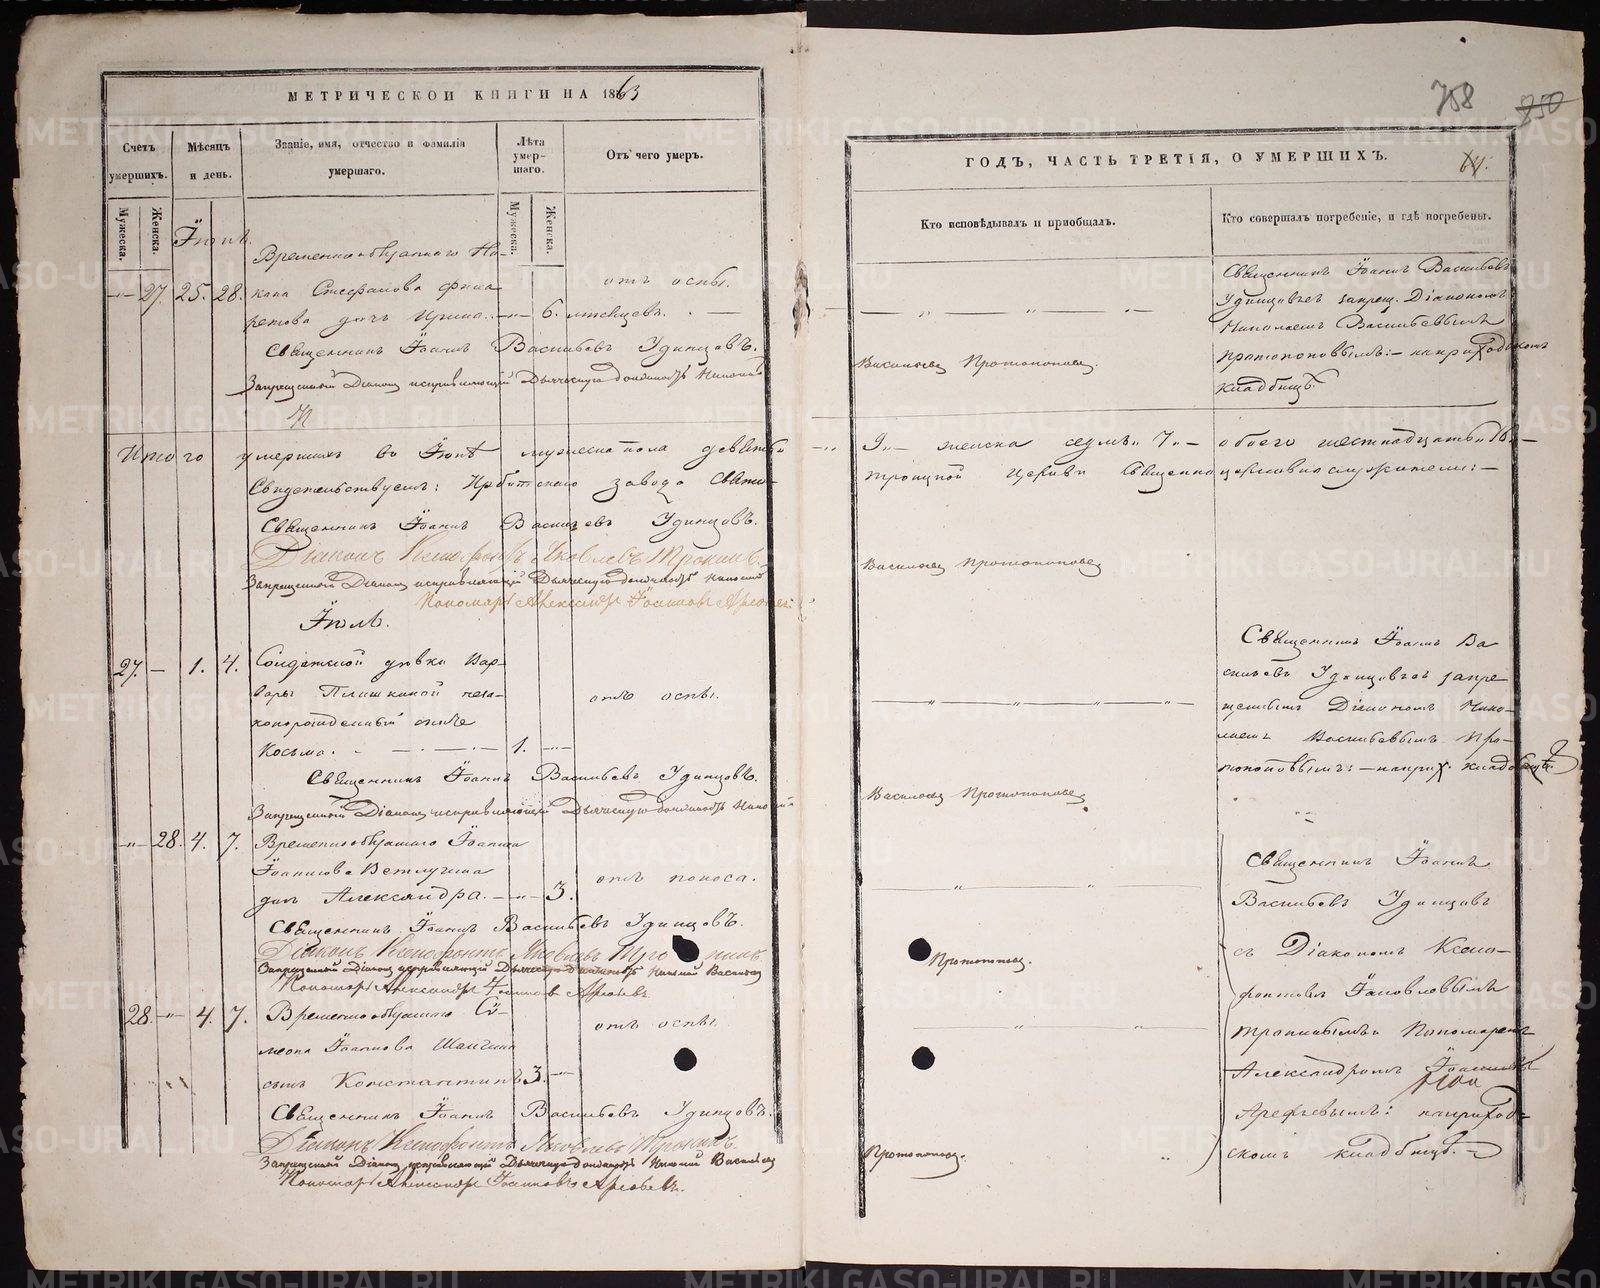 МЕТРИЧЕСКОИ КНИГИ НА 1863
Счетъ умершихъ.
Мѣсяцъ и день.
Званіе, имя, отчество и фамилія умершаго.
Лѣта умершаго.
Отъ чего умеръ.
Мужеска.
Женска.
Мужеска.
Женска.
Іюнь.
Временнообязаннаго Ни-
27. 25. 28. кана Стефанова
дочь Ирина. 6. мѣсяцевъ.
отъ оспы.
Священникъ Іоаннъ Васильевъ Удинцовъ.
Запрещенный Діаконъ исправляющій Дьяческую должность Николай
Итого умершихъ въ Іюнѣ мужеска пола девять
Свидетельствуемъ: Ирбитскаго завода Свято-
Священникъ Іоаннъ Васильевъ Удинцовъ.
Діаконъ Ксенофонтъ Яковлевъ Тропинъ.
Запрещенный Діаконъ исправляющій Дьяческую должность Николай
Пономарь Александръ Іоанновъ Арефьевъ.
Іюль.
27. — 1. 4. Солдатской дѣвки Вар-
вары Плишкиной неза-
коннорожденный сынъ
Косьма. 1.
отъ оспы.
Священникъ Іоаннъ Васильевъ Удинцовъ.
Запрещенный Діаконъ исправляющій Дьяческую должность Николай
28. 4. 7. Временнообязаннаго Іоанна
Іоаннова Ветлугина
дочь Александра. 3.
отъ поноса.
Священникъ Іоаннъ Васильевъ Удинцовъ.
Діаконъ Ксенофонтъ Яковлевъ Тропинъ.
Запрещенный Діаконъ исправляющій Дьяческую должность Николай Васильевъ
Пономарь Александръ Іоанновъ Арефьевъ.
28. 4. 7. Временнообязаннаго Си-
меона Іоаннова
сынъ Константинъ 3.
отъ оспы.
Священникъ Іоаннъ Васильевъ Удинцовъ.
Діаконъ Ксенофонтъ Яковлевъ Тропинъ.
Запрещенный Діаконъ исправляющій Дьяческую должность Николай Васильевъ
Пономарь Александръ Іоанновъ Арефьевъ.
758 750
ГОДЪ, ЧАСТЬ ТРЕТІЯ, О УМЕРШИХЪ.
Кто исповѣдывалъ и пріобщалъ.
Кто совершалъ погребеніе, и гдѣ погребены.
Священникъ Іоаннъ Васильевъ
Удинцовъ съ запрещ. Діакономъ
Николаемъ Васильевымъ
Протопоповымъ: на приходскомъ
кладбищѣ.
Васильевъ Протопоповъ.
9. женска седмь 7. обоего шестнадцать 16.
Троицкой Церкви Священноцерковнослужители:
Васильевъ Протопоповъ
Священникъ Іоаннъ Ва-
сильевъ Удинцовъ съ запре-
щеннымъ Діакономъ Нико-
лаемъ Васильевымъ Про-
топоповымъ: на прих. кладбищѣ.
Васильевъ Протопоповъ
Священникъ Іоаннъ
Васильевъ Удинцовъ
съ Діакономъ Ксено-
фонтомъ Яковлевымъ
Тропинымъ и Пономаремъ
Александромъ Іоанновымъ
Арефьевымъ: на приход-
скомъ кладбищѣ.
Протопоповъ.
Протопоповъ.
METRIKI.GASO-URAL.RU